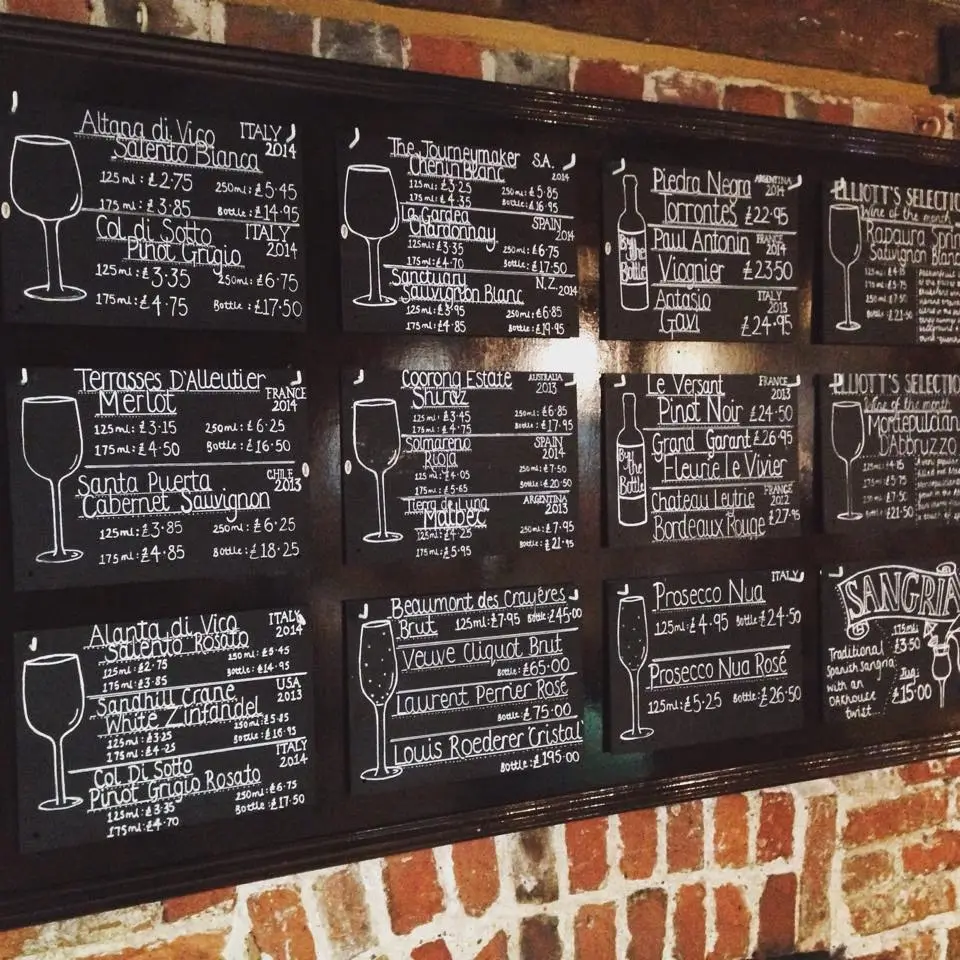 Altana di Vico ITALY
Salento Bianca 2014
125ml: £2.75 250ml: £5.45
175ml: £3.85 Bottle: £14.95
Col di Sotto ITALY
Pinot Grigio 2014
125ml: £3.35 250ml: £6.75
175ml: £4.75 Bottle: £17.50
The Journeymaker S.A.
Chenin Blanc 2014
125ml: £3.25 250ml: £5.85
175ml: £4.35 Bottle: £16.95
La Gardea SPAIN
Chardonnay 2014
125ml: £3.35 250ml: £6.75
175ml: £4.70 Bottle: £17.50
Sanctuary N.Z. 2014
Sauvignon Blanc
125ml: £3.95 250ml: £6.85
175ml: £4.85 Bottle: £19.95
By The Bottle
Piedra Negra ARGENTINA 2014
Torrontés £22.95
Paul Antonin FRANCE 2014
Viognier £23.50
Antasio ITALY 2013
Gavi £24.95
ELLIOTT'S SELECTIO
Wine of the month
Rapaura Sprin
Sauvignon Blanc
Bottle: £21.50
Terrasses D'Alleutier FRANCE
Merlot 2014
125ml: £3.15 250ml: £6.25
175ml: £4.50 Bottle: £16.50
Santa Puerta CHILE
Cabernet Sauvignon 2013
125ml: £3.85 250ml: £6.25
175ml: £4.85 Bottle: £18.25
Coorong Estate AUSTRALIA
Shiraz 2013
125ml: £3.45 250ml: £6.85
175ml: £4.75 Bottle: £17.95
Solmareno SPAIN
Rioja 2014
125ml: £4.05 250ml: £7.50
175ml: £5.65 Bottle: £20.50
Tierra de Luna ARGENTINA
Malbec 2013
125ml: £4.25 250ml: £7.95
175ml: £5.95 Bottle: £21.95
By The Bottle
Le Versant FRANCE 2013
Pinot Noir £24.50
Grand Garant £26.95
Fleurie Le Vivier
Chateau Leytrie FRANCE 2012
Bordeaux Rouge £27.95
ELLIOTT'S SELECTIO
Wine of the month
Montepulcian
D'Abbruzzo
£21.50
Alanta di Vico ITALY
Salento Rosato 2014
125ml: £2.75 250ml: £5.45
175ml: £3.85 Bottle: £14.95
Sandhill Crane USA
White Zinfandel 2013
125ml: £3.25 250ml: £5.85
175ml: £4.25 Bottle: £16.95
Col Di Sotto ITALY
Pinot Grigio Rosato 2014
125ml: £3.35 250ml: £6.75
175ml: £4.70 Bottle: £17.50
Beaumont des Crayères
Brut 125ml: £7.95 Bottle: £45.00
Veuve Cliquot Brut
Bottle: £65.00
Laurent Perrier Rosé
Bottle: £75.00
Louis Roederer Cristal
Bottle: £195.00
ITALY
Prosecco Nua
125ml: £4.95 Bottle: £24.50
Prosecco Nua Rosé
125ml: £5.25 Bottle: £26.50
SANGRIA
Traditional
Spanish sangria
with an
OAKhouse
twist...
175ml:
£3.50
Jug:
£15.00